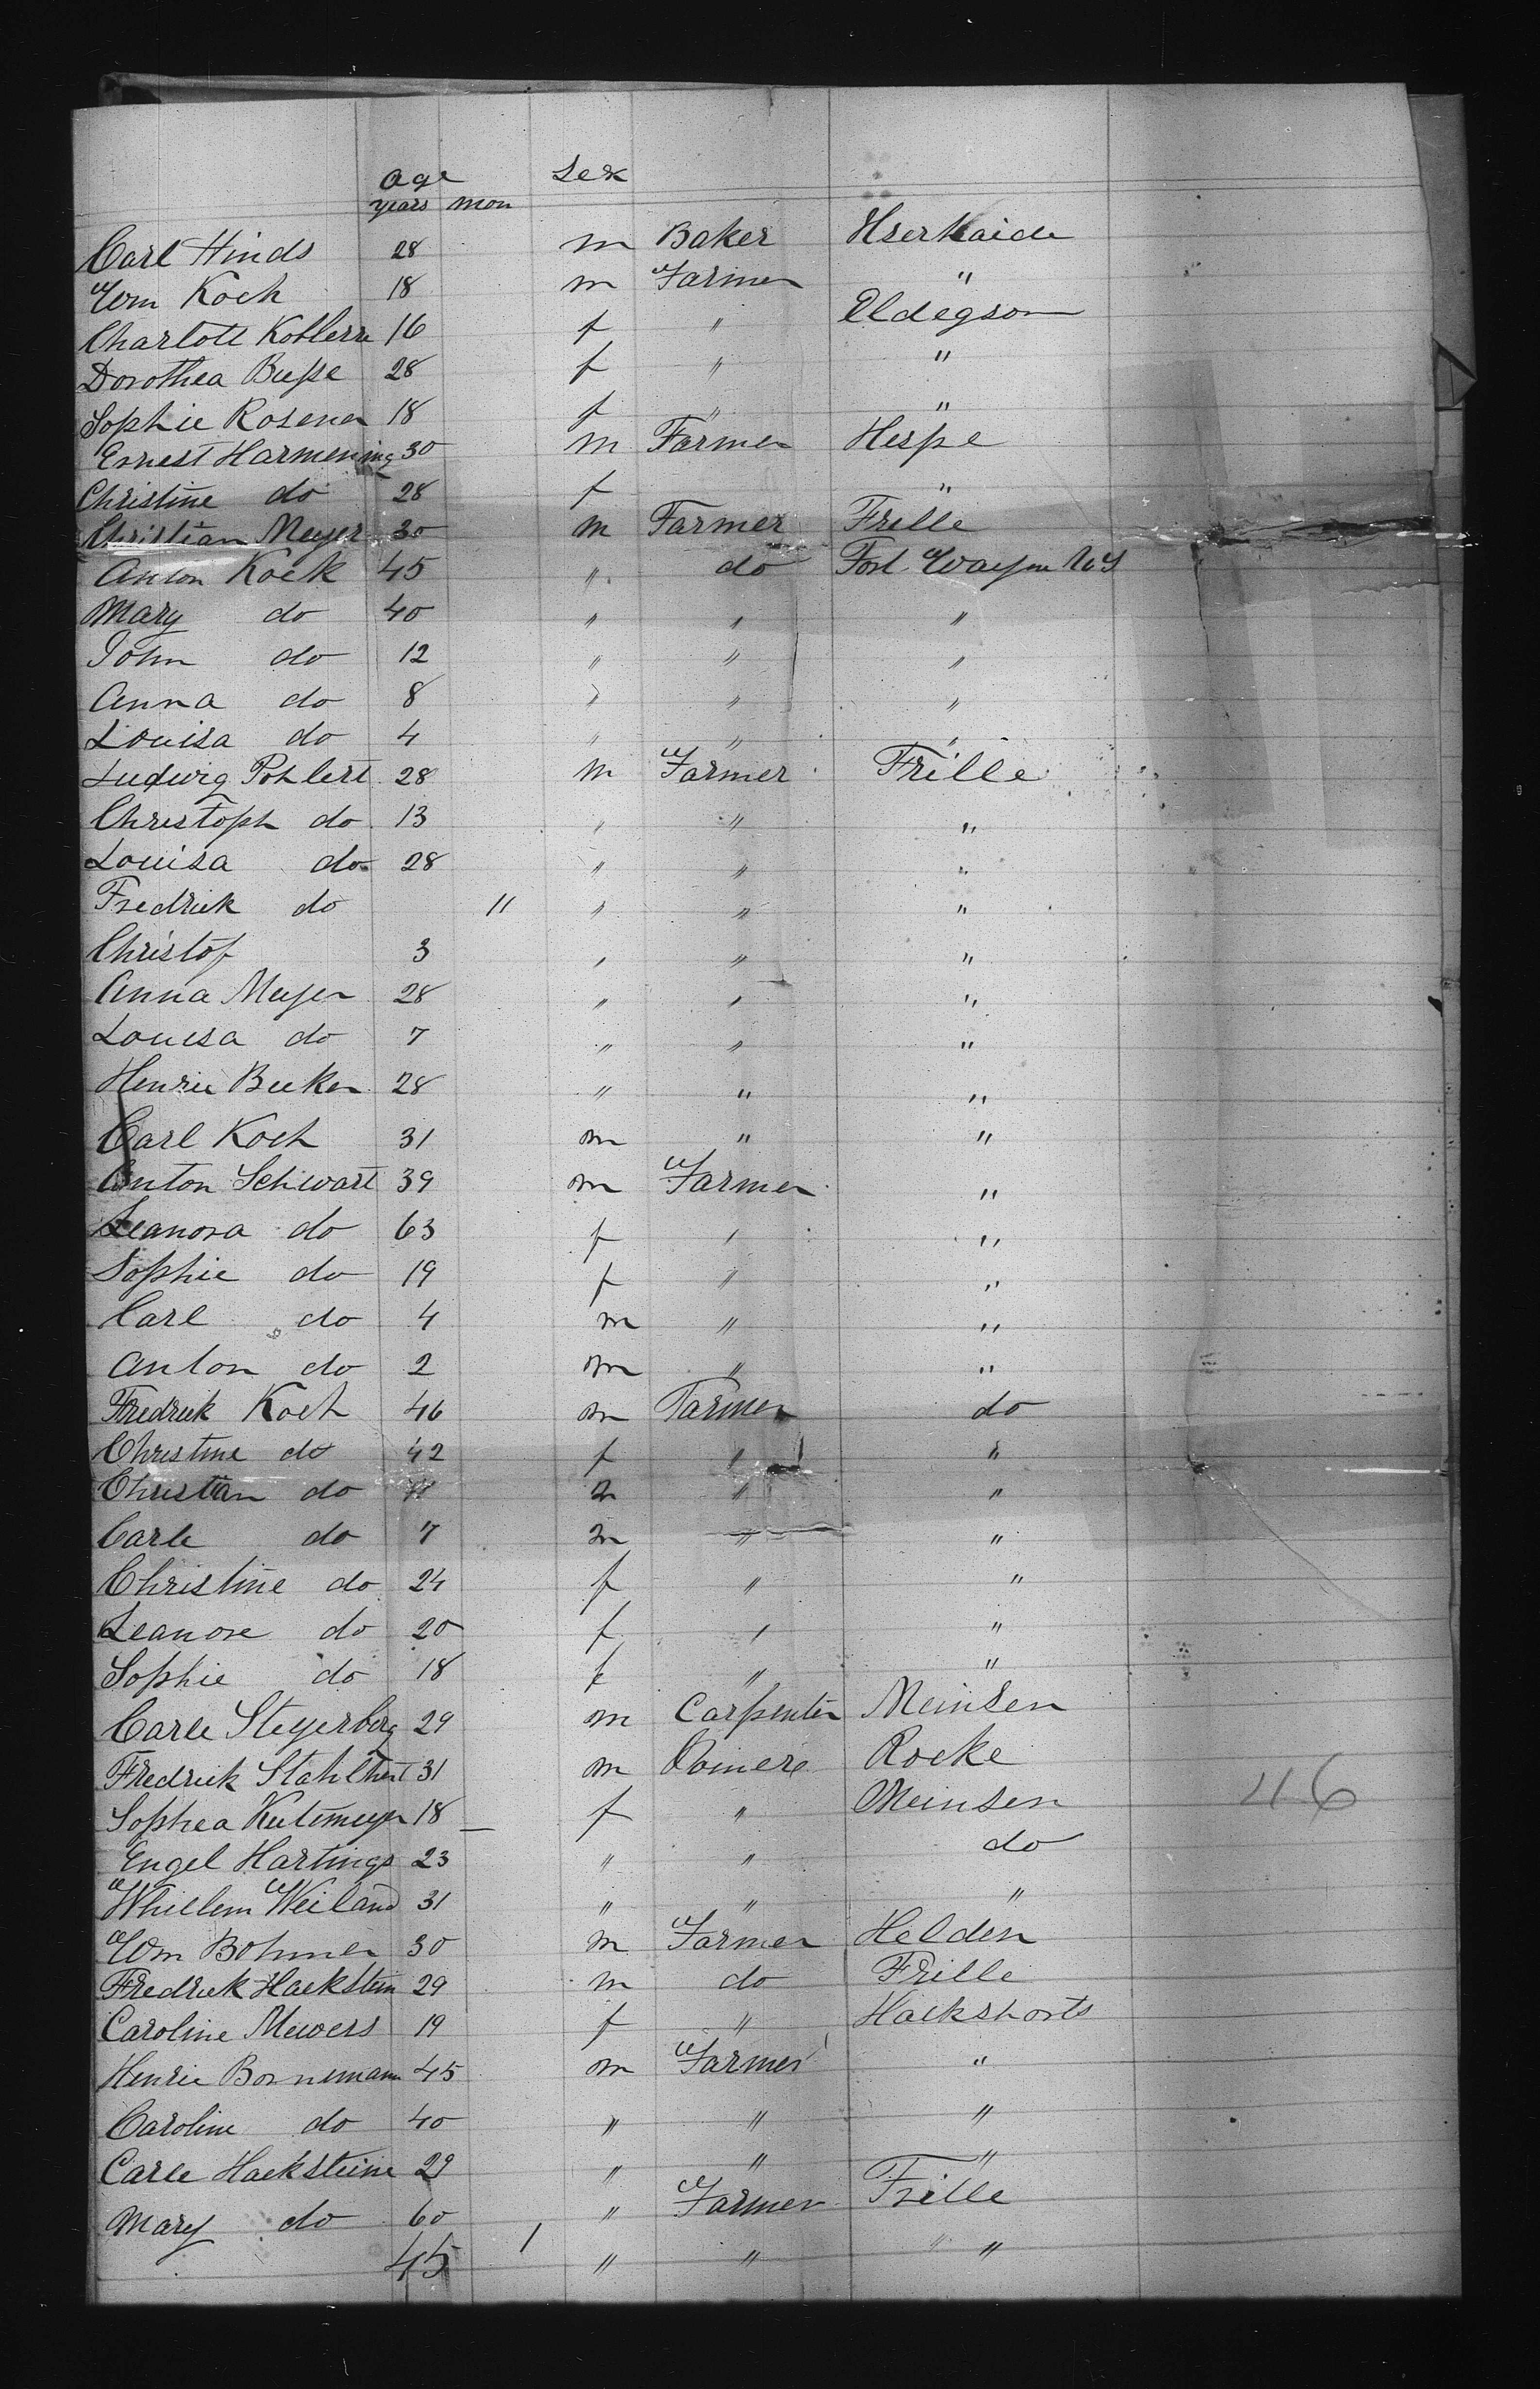 Age Sex
years mon
Carl Hinds 28 m Baker
Wm Koch 18 m Farmer "
Charlott 16 f " Eldegsom
Dorothea Busse 28 f " "
Sophie Rosener 18 f " "
Ernest Harmening 30 m Farmer Hespe
Christine do 28 f "
Christian Meyer 30 m Farmer Frille
Anton Kock 45 " do Fort Wayne US
Mary do 40 " " "
John do 12 " " "
Anna do 8 " " "
Louisa do 4 " " "
Ludwig Pohlert 28 m Farmer Frille
Christoph do 13 " " "
Louisa do 28 " " "
Fredrick do 11 " " "
Christof 3 " " "
Anna Meyer 28 " " "
Louisa do 7 " " "
Henrie Becker 28 " " "
Carl Koch 31 m " "
Anton Schwart 39 m Farmer "
Leanora do 63 f " "
Sophie do 19 f " "
Carl do 4 m " "
Anton do 2 m " "
Fredrick Koch 46 m Farmer do
Christine do 42 f " "
Christian do 11 m " "
Carle do 7 m " "
Christine do 24 f " "
Leanore do 20 f " "
Sophie do 18 f " "
Carle Steyerberg 29 m Carpenter Meinsen
Fredrick 31 m Rocke
Sophea 18 f " Meinsen
Engel Hartings 23 " " do
Whillem Weiland 31 " " "
Wm Bohmer 30 m Farmer Helden
Fredrick Hackstein 29 m do Frille
Caroline Mewers 19 f " Hackshorts
Henrie Bornemann 45 m Farmer "
Caroline do 40 " " "
Carle Hacksteine 29 " " "
Mary do 60 " Farmer Frille
45 1 " " "
46